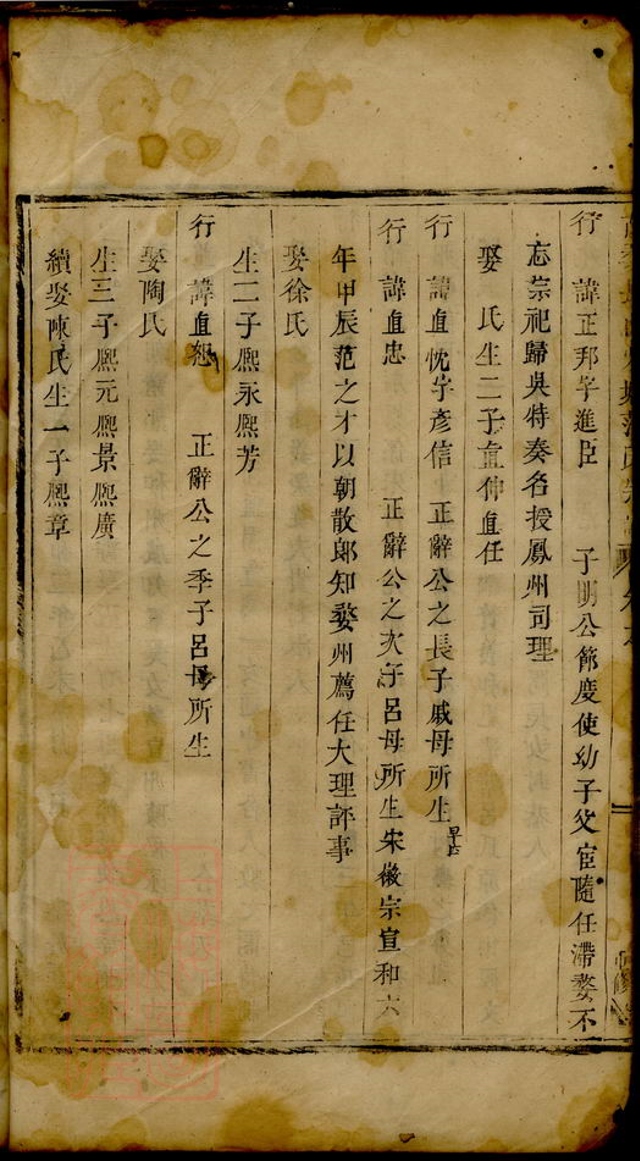 行　諱正邦字進臣　子明公節度使幼子父宦隨任滯婺不
忘宗祀歸吳特奏名授鳳州司理
娶　氏生二子直伸直任
行　諱直忱字彥信　正辭公之長子戚母所生
行　諱直忠　正辭公之次子呂母所生宋徽宗宣和六
年甲辰范之才以朝散郎知婺州薦任大理評事
娶徐氏
生二子熙永熙芳
行　諱直恕　正辭公之季子呂母所生
娶陶氏
生三子熙元熙景熙廣
續娶陳氏生一子熙章